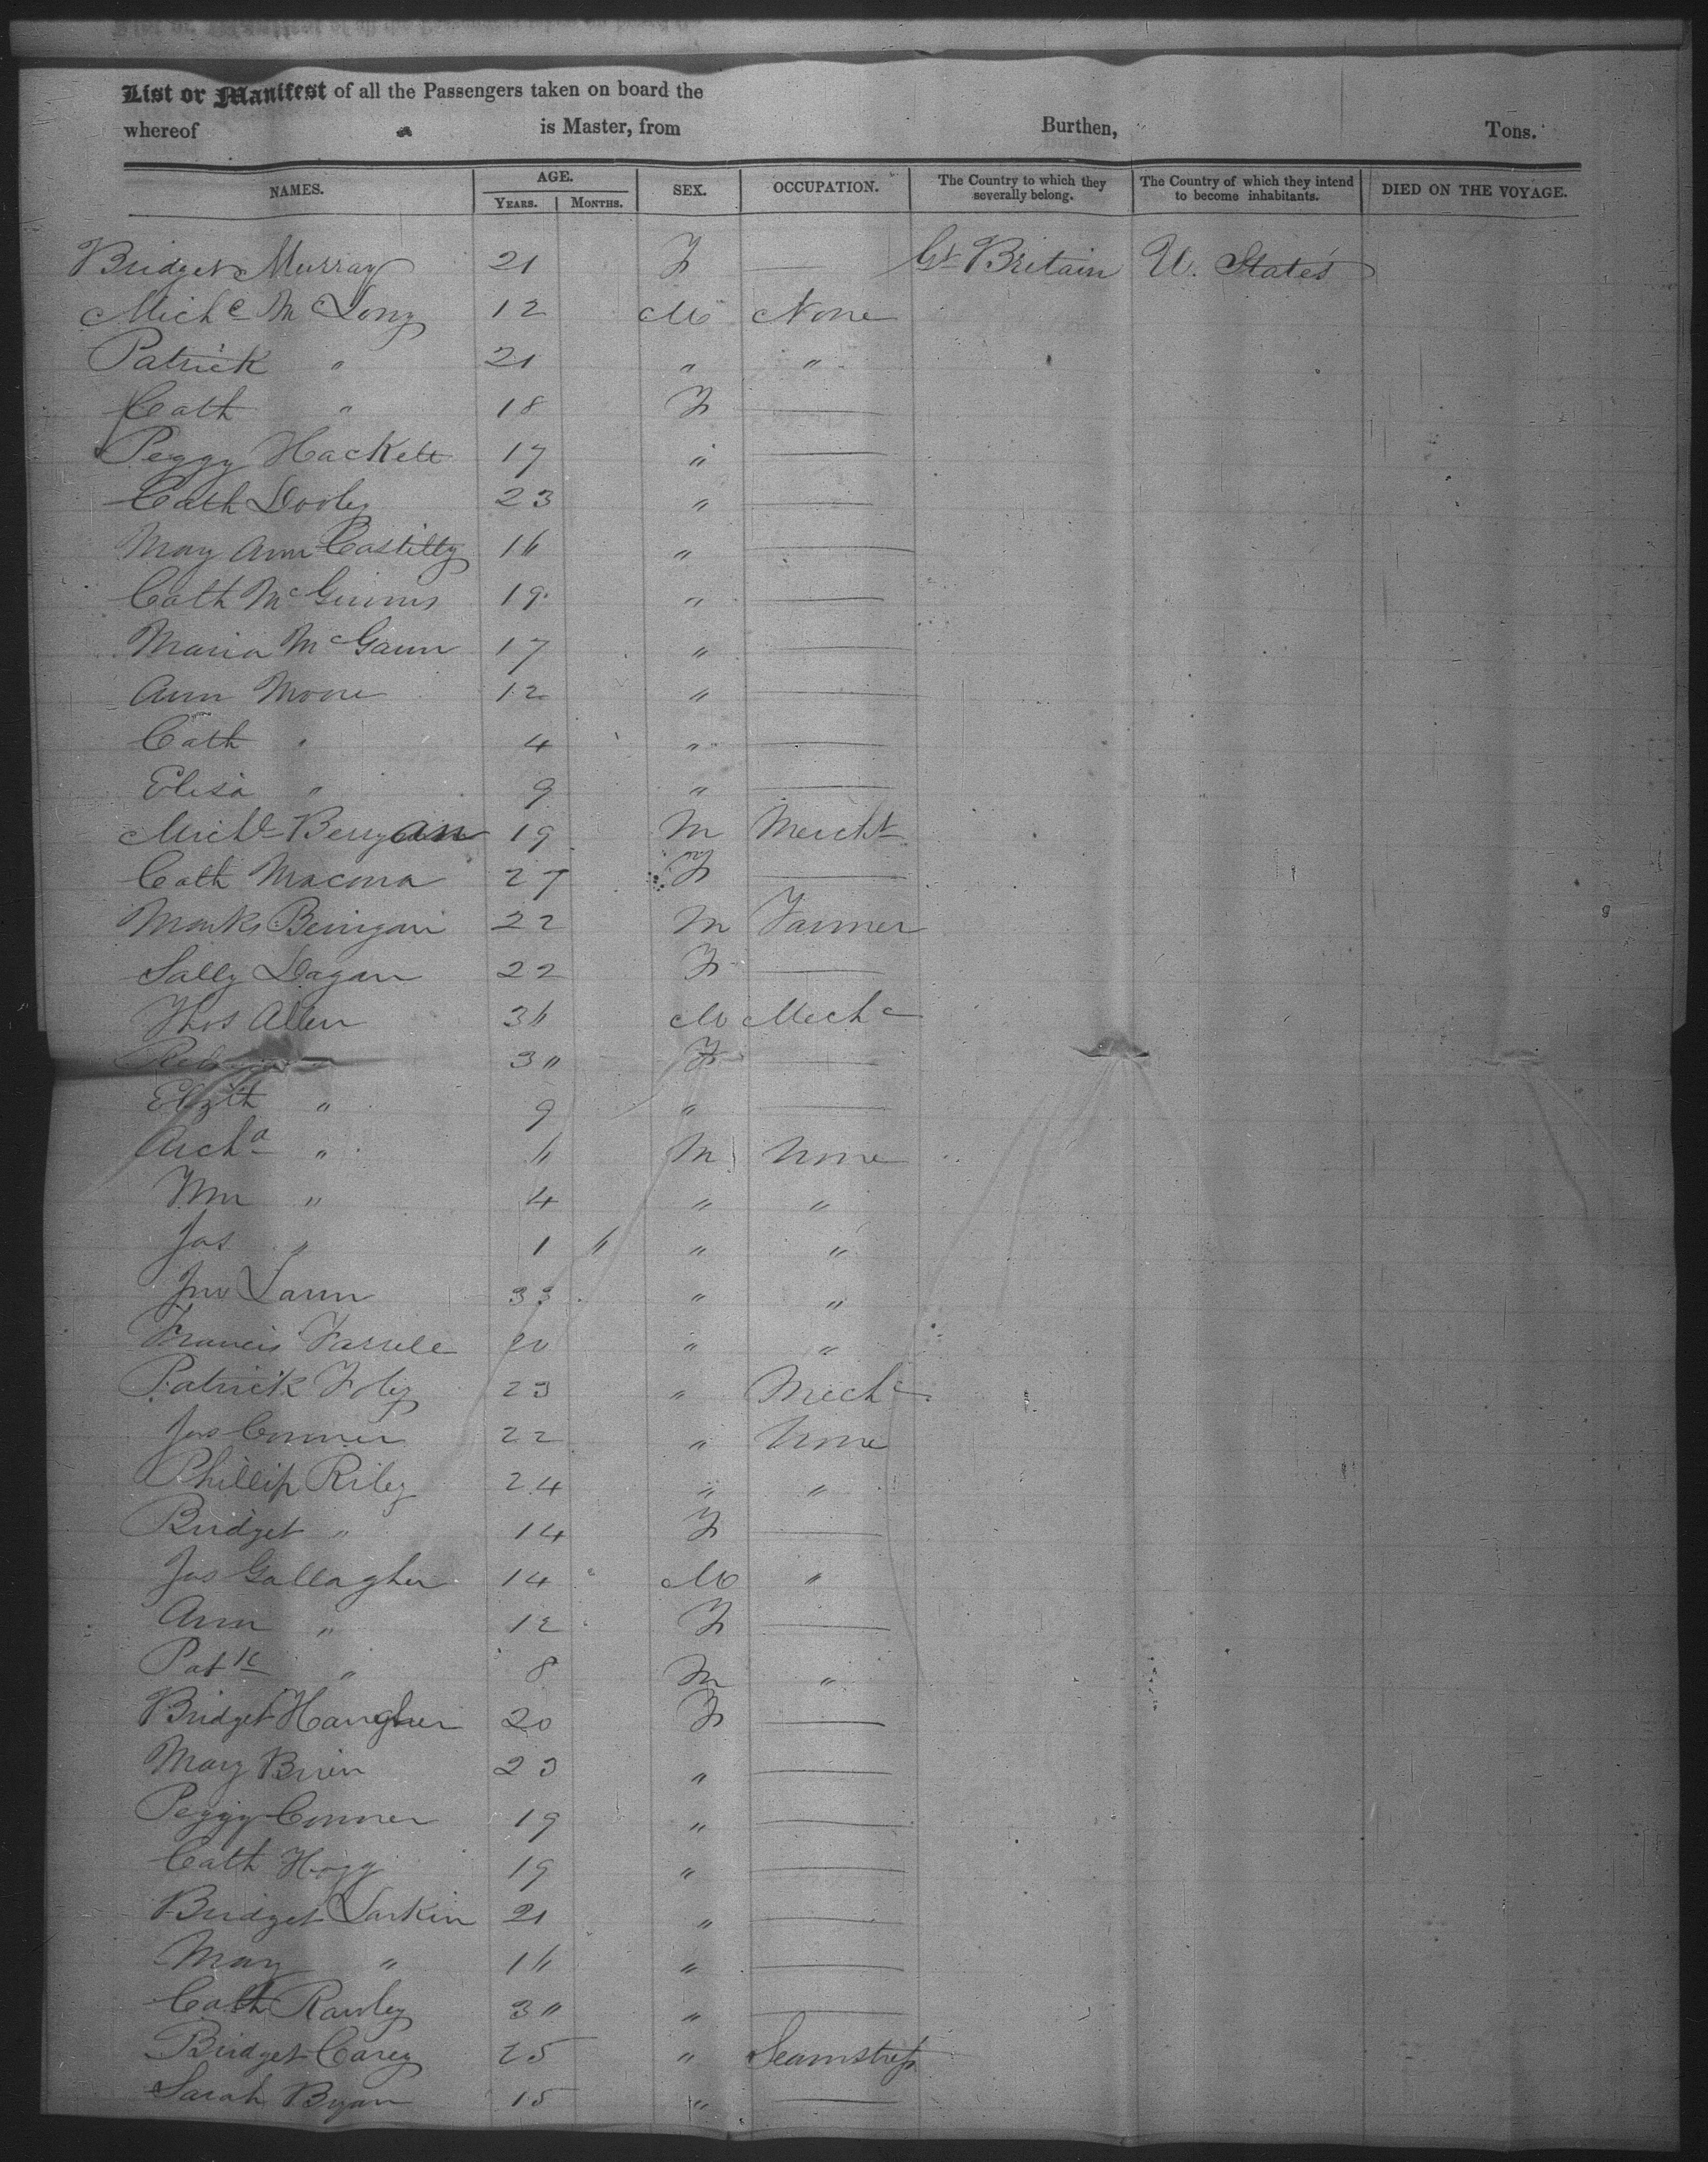 List or Manifest of all the Passengers taken on board the
whereof is Master, from Burthen, Tons.
NAMES. AGE. SEX. OCCUPATION. The Country to which they severally belong. The Country of which they intend to become inhabitants. DIED ON THE VOYAGE.
YEARS. MONTHS.
Bridget Murray 21 F — Gt Britain U. States
Michl McLony 12 M None
Patrick " 21 " "
Cath " 18 F —
Peggy Hackett 17 " —
Cath Dooley 23 " —
Mary Ann Costilly 16 " —
Cath McGinnis 19 " —
Maria McGann 17 " —
Ann Moore 12 " —
Cath " 4 " —
Elisa " 9 " —
Michl Berrgan 19 M Mercht
Cath Macona 27 F —
Marks Berrigan 22 M Farmer
Sally Dagan 22 F —
Thos Allen 36 M Mechc
30 F —
Elizth " 9 " —
Archd " 6 M None
Wm " 4 " "
Jas " 1 6 " "
Jno Lamn 33 " "
Francis Farrell 20 " "
Patrick Foley 23 " Mechc
Jas Conner 22 " None
Phillip Riley 24 " "
Bridget " 14 F —
Jas Gallagher 14 M "
Ann " 12 F —
Patk " 8 M "
Bridget Haugher 20 F —
Mary Brien 23 " —
Peggy Conner 19 " —
Cath Hogg 19 " —
Bridget Larkin 21 " —
Mary " 16 " —
Cath Rawley 30 " —
Bridget Carey 25 " Seamstress
Sarah Byan 15 " —